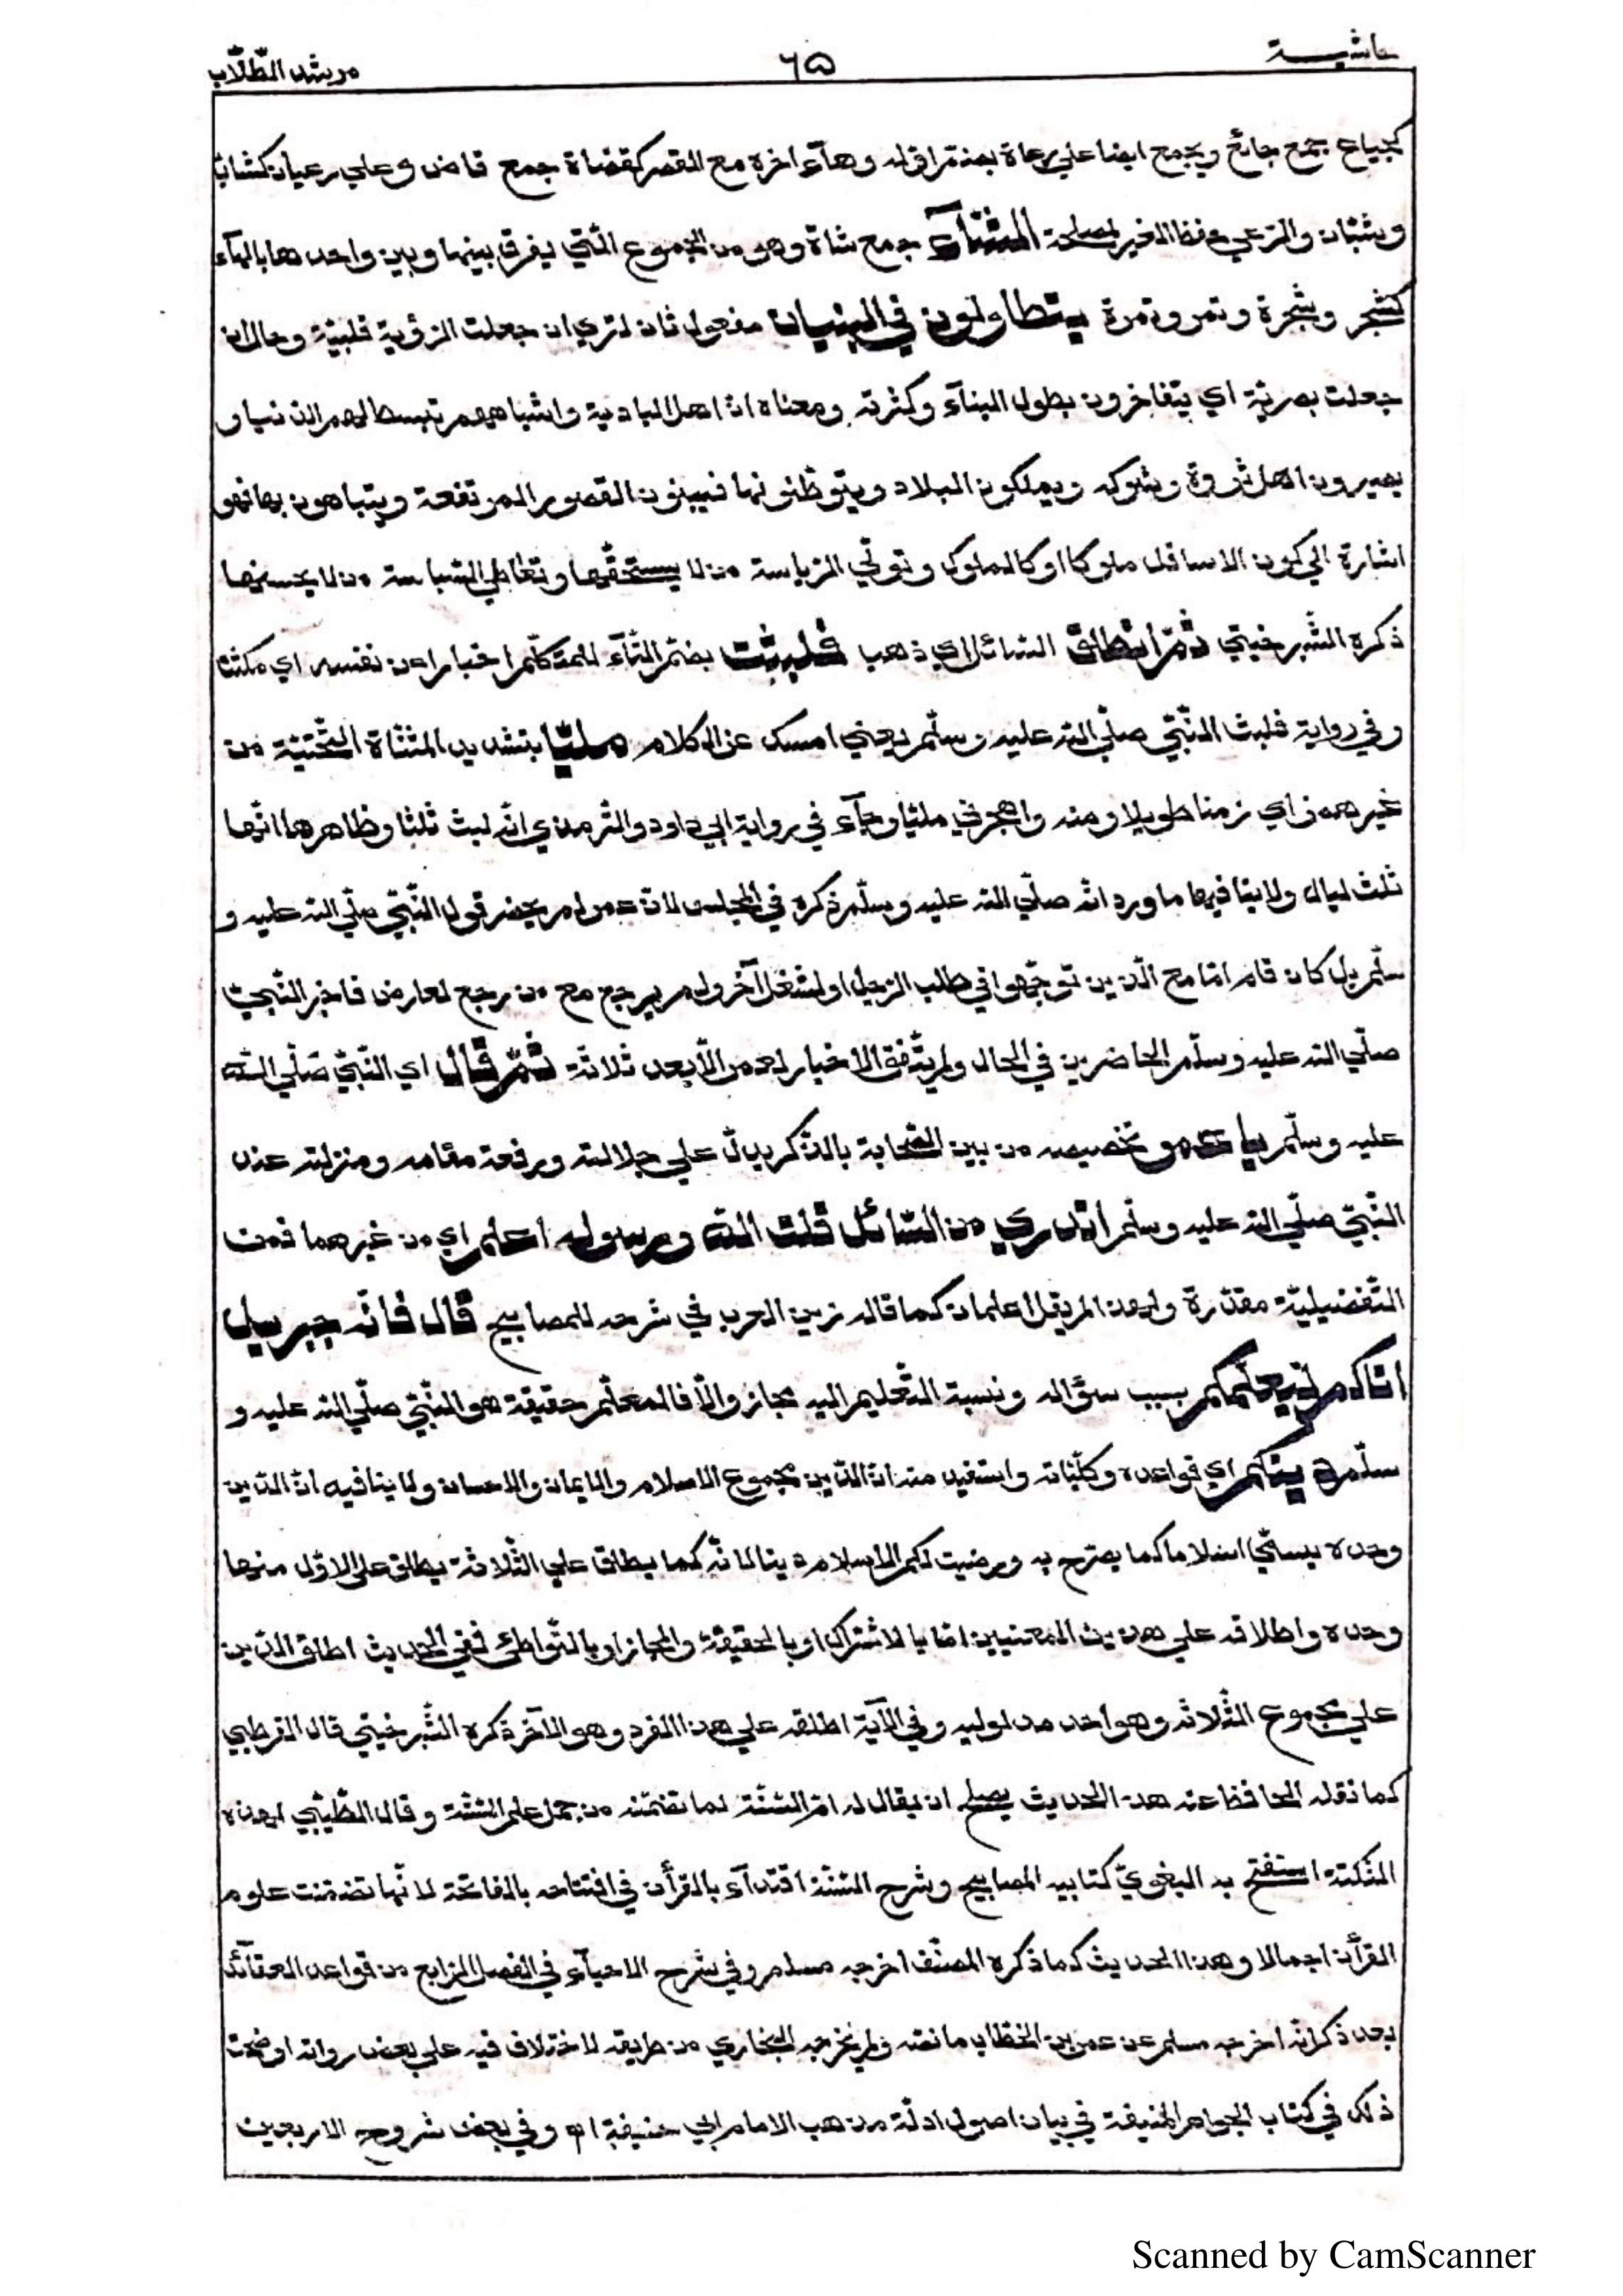 حاشيـــة ٦٥ مرشد الطّلّاب
كجياع جمع جائع ويجمع ايضا على رعاة بضمّ اوّله وهآء اخره مع القصر كقضاة جمع قاض وعلي رعيان كشابّ
وشبّان والرّعي حفظ الغير لمصلحة الشّآء جمع شاة وهو من الجموع الّتي يفرق بينها وبين واحدها بالهآء
كشجر وشجرة وتمر وتمرة يتطاولون في البنيان مفعول ثان لتري ان جعلت الرّؤية قلبيّة وحال ان
جعلت بصريّة اي يتفاخرون بطول البنآء وكثرته ومعناه انّ اهل البادية واشباههم تبسط لهم الدّنيا و
يصيرون اهل ثروة وشوكة ويملكون البلاد ويتوطّنونها فيبنون القصور المرتفعة ويتباهون بها فهو
اشارة الي كون الاسافل ملوكا او كالملوك وتولّي الرّياسة من لا يستحقّها وتعاطي السّياسة من لا يحسنها
ذكره الشّبرخيتي ثمّ انطلق السّائل اي ذهب فلبثت بضمّ التّآء للمتكلّم اخبارا عن نفسه اي مكثت
وفي رواية فلبث النّبيّ صلّي الله عليه وسلّم يعني امسك عن الكلام مليّا بتشديد المثنّاة التّحتيّة من
غير همز اي زمنا طويلا ومنه واهجرني مليّا وجآء في رواية ابي داود والتّرمذي انّه لبث ثلثا وظاهرها انّها
ثلث ليال ولا ينافيها ما ورد انّه صلّي الله عليه وسلّم ذكره في المجلس لانّ عمر لم يحضر قول النّبيّ صلّي الله عليه و
سلّم بل كان قام امّا مع الّذين توجّهوا في طلب الرّجل او لشغل آخر ولم يرجع مع من رجع لعارض فاخبر النّبيّ
صلّي الله عليه وسلّم الحاضرين في الحال ولم يتّفق الاخبار لعمر الّا بعد ثلاثة ثمّ قال اي النّبيّ صلّي الله
عليه وسلّم يا عمر تخصيصه من بين الصّحابة بالذّكر يدلّ علي جلالته ورفعة مقامه ومنزلته عند
النّبيّ صلّي الله عليه وسلّم اتدري من السّائل قلت الله ورسوله اعلم اي من غيرهما فمن
التّفضيليّة مقدّرة ولهذا لم يقل اعلمان كما قاله زين العرب في شرحه للمصابيح قال فانّه جبريل
اتاكم ليعلّمكم بسبب سؤاله ونسبة التّعليم اليه مجاز والّا فالمعلّم حقيقة هو النّبيّ صلّي الله عليه و
سلّم دينكم اي قواعده وكلّيّاته واستفيد منه انّ الدّين مجموع الاسلام والايمان والاحسان ولا ينافيه انّ الدّين
وحده يسمّي اسلاما كما يصرّح به ورضيت لكم الاسلام دينا لانّه كما يطلق علي الثّلاثة يطلق علي الاوّل منها
وحده واطلاقه علي هذين المعنيين امّا بالاشتراك او بالحقيقة والمجاز او بالتّواطئ ففي الحديث اطلق الدّين
علي مجموع الثّلاثة وهو احد مدلوليه وفي الآية اطلقه علي هذا الفرد وهو الآخر ذكره الشّبرخيتي قال القرطبي
كما نقله الحافظ عنه هذا الحديث يصلح ان يقال له امّ السّنّة لما تضمّنه من جمل علم السّنّة وقال الطّيبي لهذه
النّكتة استفتح به البغويّ كتابيه المصابيح وشرح السّنّة اقتدآء بالقرأن في افتتاحه بالفاتحة لانّها تضمّنت علوم
القرأن اجمالا وهذا الحديث كما ذكره المصنّف اخرجه مسلم وفي شرح الاحيآء في الفصل الرّابع من قواعد العقآئد
بعد ذكر انّه اخرجه مسلم عن عمر بن الخطّاب ما نصّه ولم يخرجه البخاري من طريقه لاختلاف فيه علي بعض رواته اوضحت
ذلك في كتاب الجواهر المنيفة في بيان اصول ادلّة مذهب الامام ابي حنيفة اه وفي بعض شروح الاربعين
Scanned by CamScanner